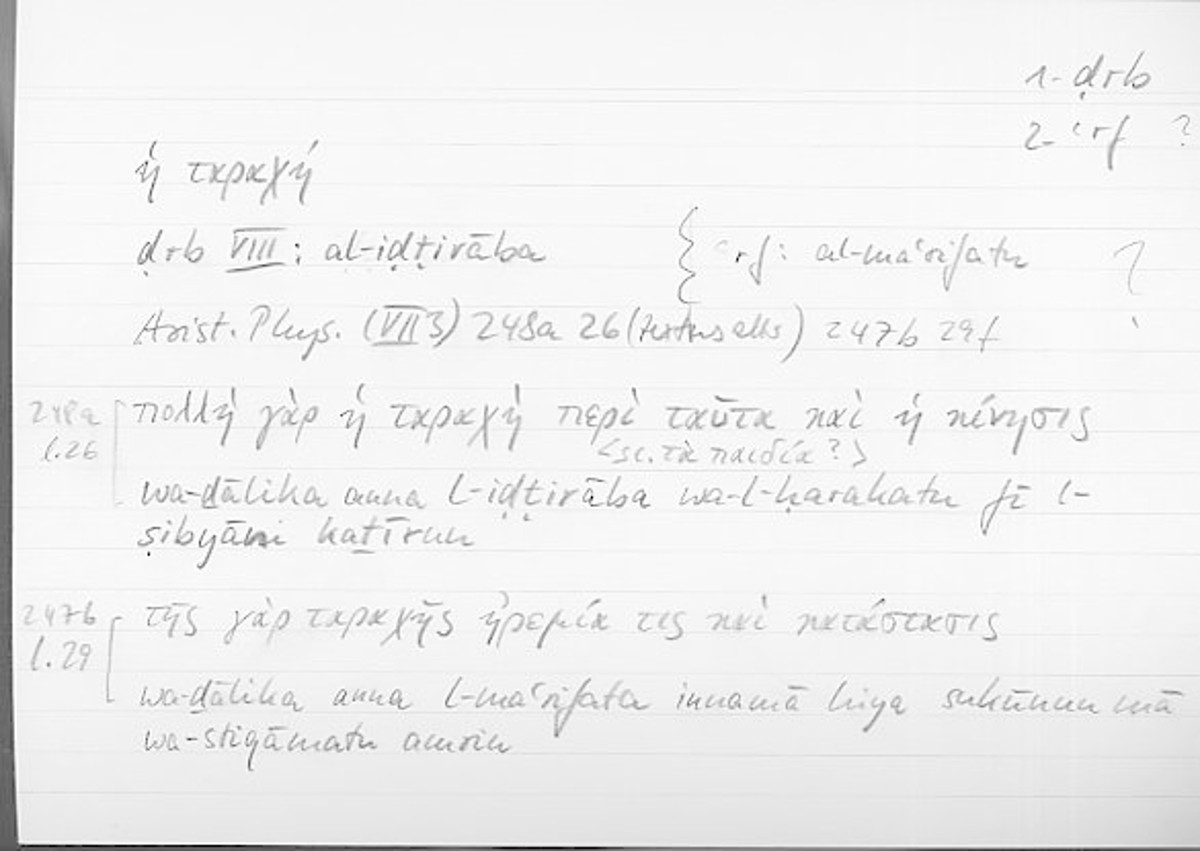 1- ḍrb
2- ʿrf ?
ἡ ταραχή
ḍrb VIII: al-iḍṭirāba { ʿrf: al-maʿrifatu ?
Arist. Phys. (VII 3) 248a 26 (textus alter) 247b 29f
248a l.26
πολλὴ γὰρ ἡ ταραχὴ περὶ ταῦτα καὶ ἡ κίνησις
<sc. τὰ παιδία ?>
wa-ḏālika anna l-iḍṭirāba wa-l-ḥarakatu fī l-
ṣibyāni kaṯīrun
247b l.29
τῆς γὰρ ταραχῆς ἠρεμία τις καὶ κατάστασις
wa-ḏālika anna l-maʿrifata innamā hiya sukūnun mā
wa-stiqāmatu amrin